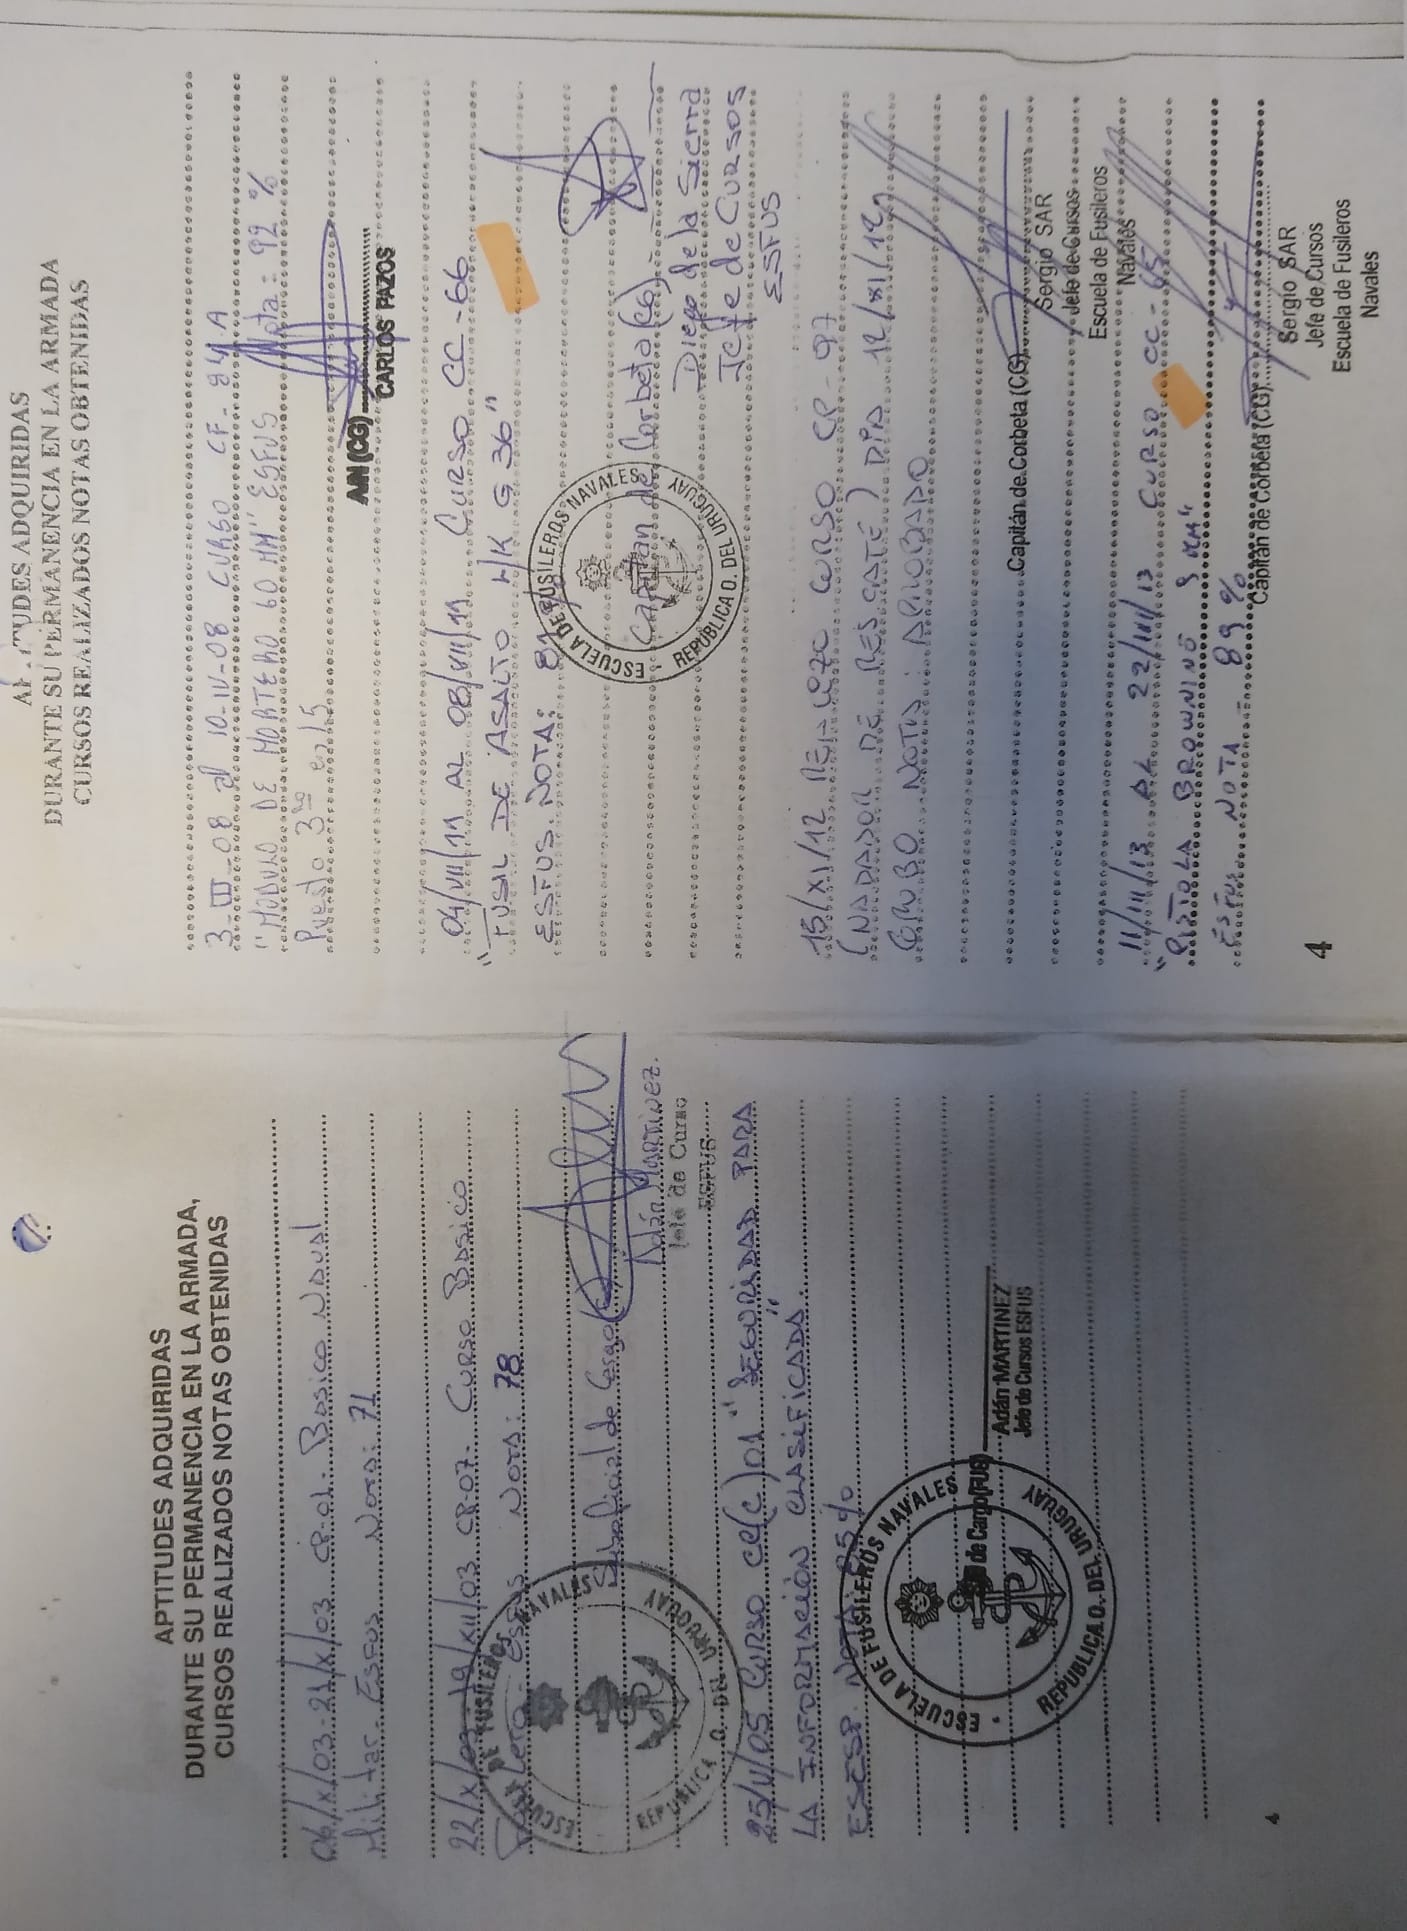 APTITUDES ADQUIRIDAS
DURANTE SU PERMANENCIA EN LA ARMADA,
CURSOS REALIZADOS NOTAS OBTENIDAS
06/X/03-21/X/03 CP-01- Basico Naval
Militar- ESFUS Nota: 71
22/X/03-19/XII/03 CP-07- Curso Basico
Fusilero - ESFUS Nota: 78
ESCUELA DE FUSILEROS NAVALES
REPUBLICA O. DEL URUGUAY
Suboficial de Cargo
Adán MARTINEZ.
Jefe de Curso
ESFUS
25/V/05 CURSO CC(C)01 "SEGURIDAD PARA
LA INFORMACIÓN CLASIFICADA".
ESESP. NOTA: 85%
ESCUELA DE FUSILEROS NAVALES
REPUBLICA O. DEL URUGUAY
de Cargo(FUS)
Adán MARTINEZ
Jefe de Cursos ESFUS
4
APTITUDES ADQUIRIDAS
DURANTE SU PERMANENCIA EN LA ARMADA
CURSOS REALIZADOS NOTAS OBTENIDAS
3-III-08 al 10-IV-08 CURSO CF- A
"MODULO DE MORTERO 60 MM" ESFUS Nota: 92 %
Puesto 3ro en 15
A/N (CG)
CARLOS PAZOS
04/VII/11 AL 08/VII/11 CURSO CC-66
"FUSIL DE ASALTO H/K G 36"
ESFUS. NOTA: 81%
ESCUELA DE FUSILEROS NAVALES
REPUBLICA O. DEL URUGUAY
Capitan de Corbeta (CG)
Diego de la Sierra
Jefe de CURSOS
ESFUS
15/XI/12 REALIZO CURSO CP-97
(NADADOR DE RESCATE) DIA 12/XI/12
NOTA: APROBADO
Capitán de Corbeta (CG)
Sergio SAR
Jefe de Cursos
Escuela de Fusileros
Navales
11/III/13 AL 22/III/13 CURSO CC-65
"PISTOLA BROWNING 9 MM"
ESFUS NOTA - 89%
Capitán de Corbeta (CG)
Sergio SAR
Jefe de Cursos
Escuela de Fusileros
Navales
4